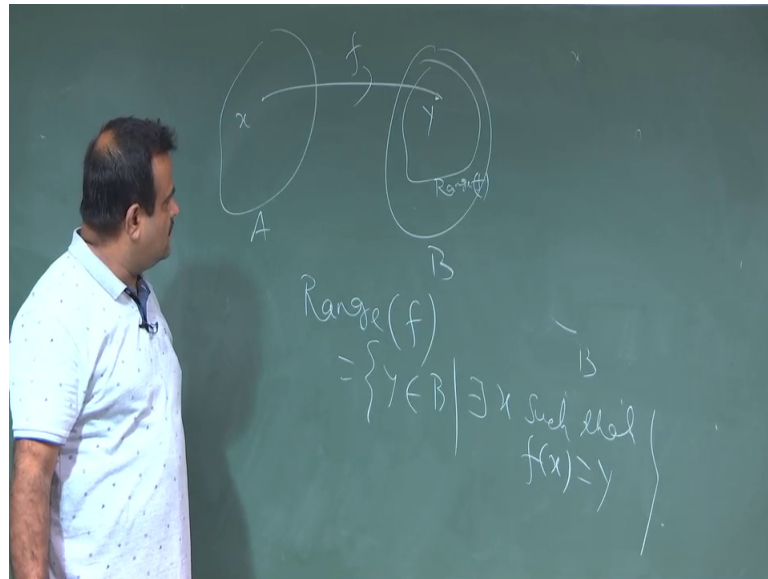 f
x
y
Range(f)
A
B
Range(f)
= { y ∈ B | ∃ x such that
f(x) = y }
B